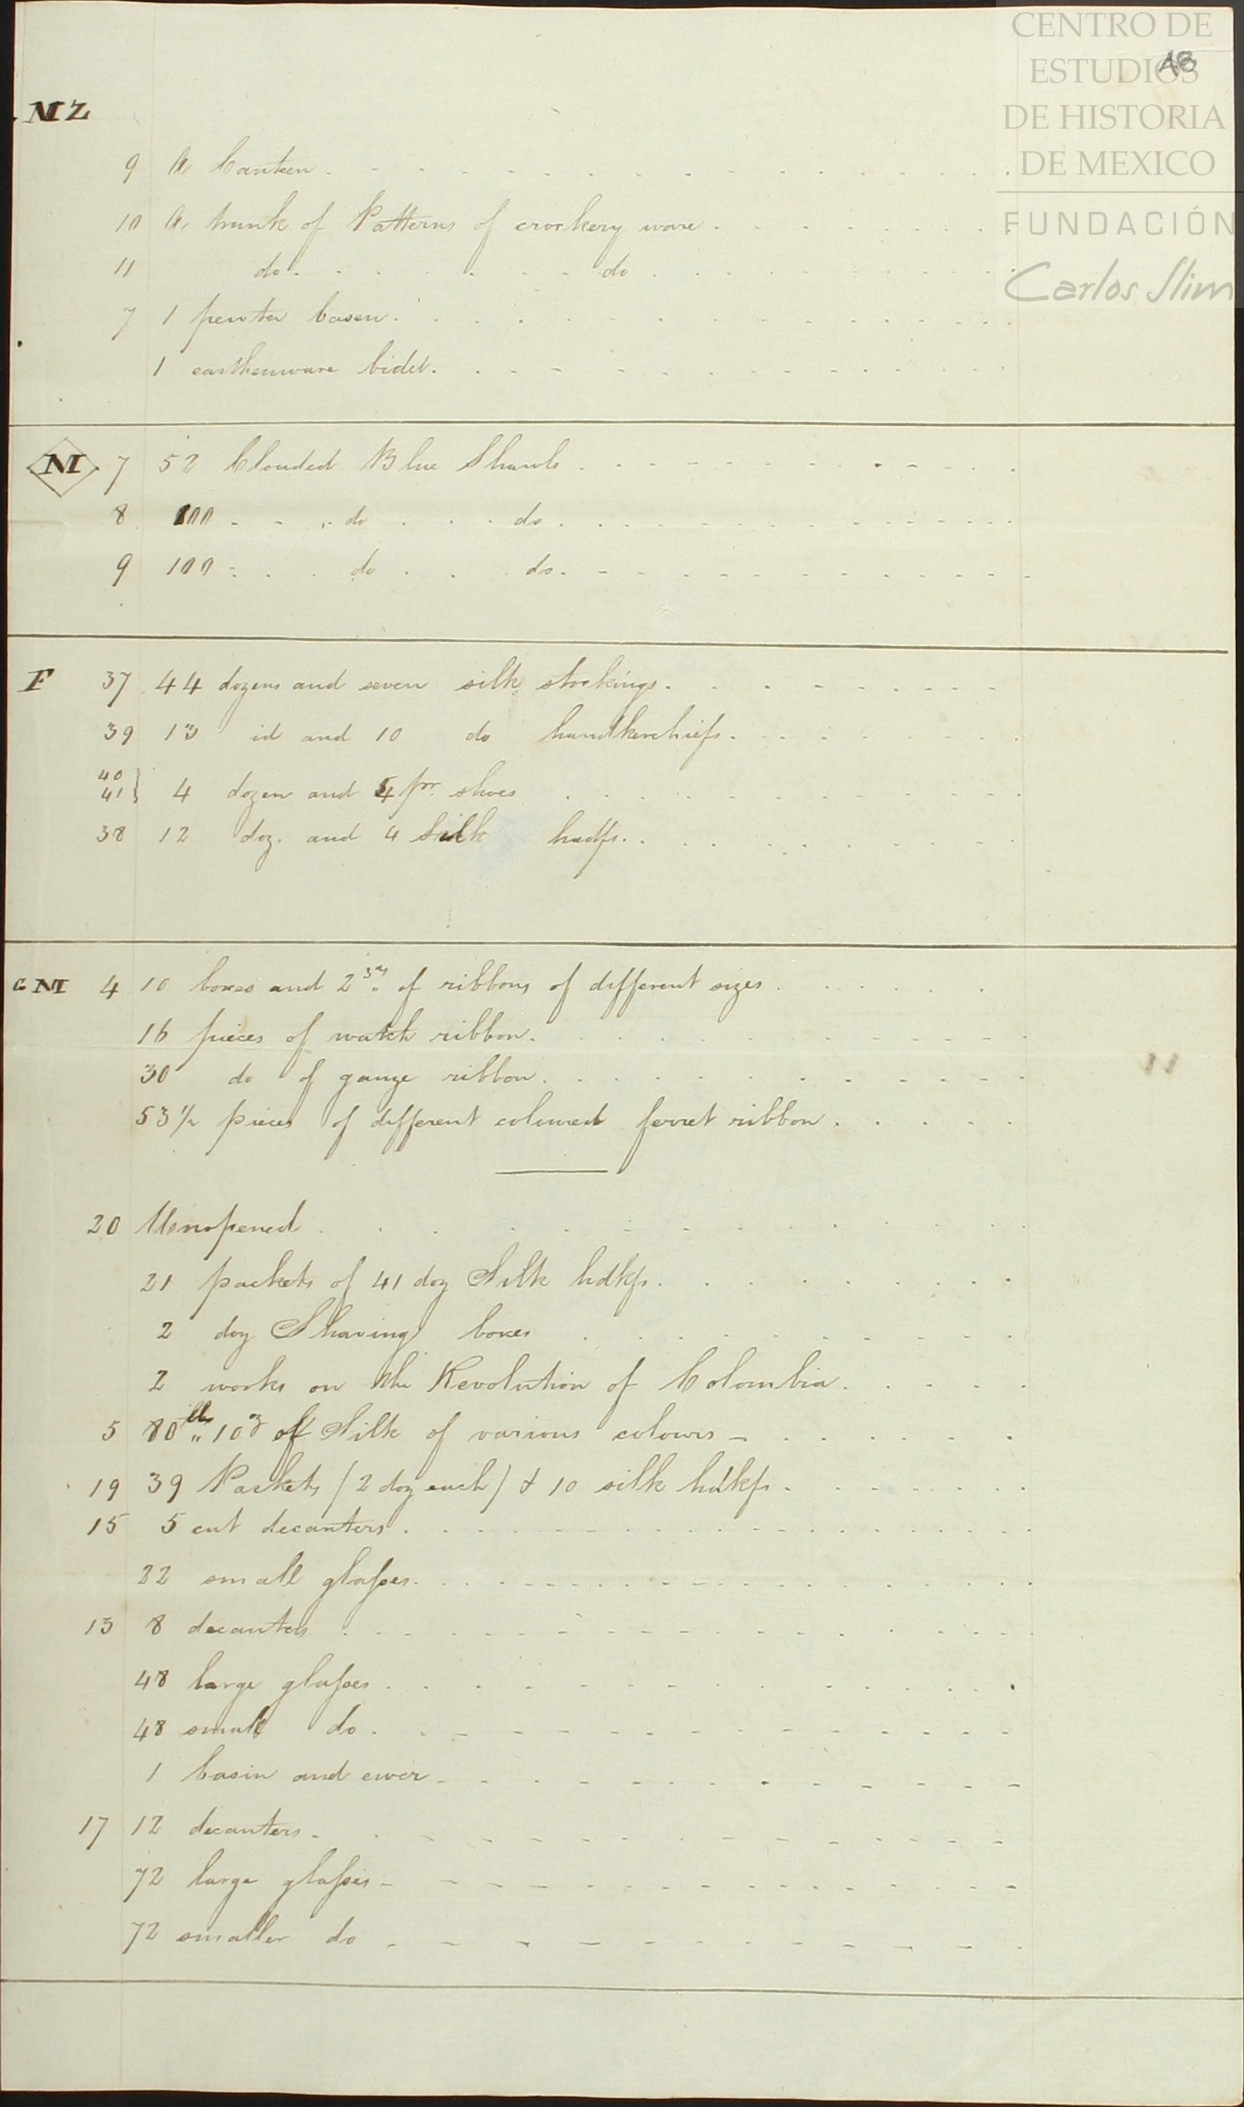 CENTRO DE
ESTUDIOS
DE HISTORIA
DE MEXICO
FUNDACIÓN
Carlos Slim
48
MZ
9 A Canteen
10 A trunk of Patterns of crockery ware
11 do do
7 1 pewter basen
1 earthenware bidet
M 7 52 Clouded Blue Shawls
8 100 do do
9 100 do do
F 37 44 dozens and seven silk stockings
39 13 id and 10 do handkerchiefs
40
41 } 4 dozen and 4 pr shoes
38 12 doz. and 4 Silk hadfs
GM 4 10 boxes and 2 of ribbons of different sizes
16 pieces of watch ribbon
30 do of gauze ribbon
53 1/2 pieces of different coloured ferret ribbon
20 Unopened
21 packets of 41 doz Silk hdkfs
2 doz Shaving boxes
2 works on the Revolution of Colombia
5 80 lb " 10 of Silk of various colours
19 39 Packets (2 doz each) & 10 silk hdkfs
15 5 cut decanters
22 small glasses
13 8 decanters
48 large glasses
48 small do
1 basin and ewer
17 12 decanters
72 large glasses
72 smaller do